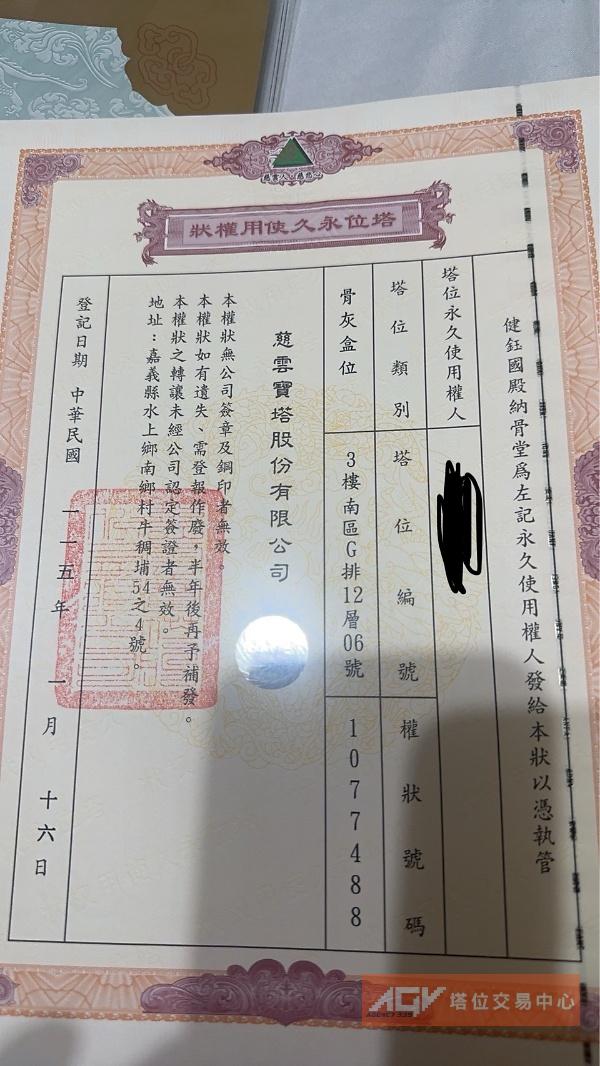 慈雲人心慈悲心
塔位永久使用權狀
健鈺國殿納骨堂為左記永久使用權人發給本狀以憑執管
塔位永久使用權人
塔位類別
塔位編號
權狀號碼
骨灰盒位
3樓南區G排12層06號
1077488
慈雲寶塔股份有限公司
本權狀無公司簽章及鋼印者無效。
本權狀如有遺失、需登報作廢，半年後再予補發。
本權狀之轉讓未經公司認定簽證者無效。
地址：嘉義縣水上鄉南鄉村牛稠埔54之4號。
登記日期 中華民國 一一五年 一月 十六日
AGV 塔位交易中心